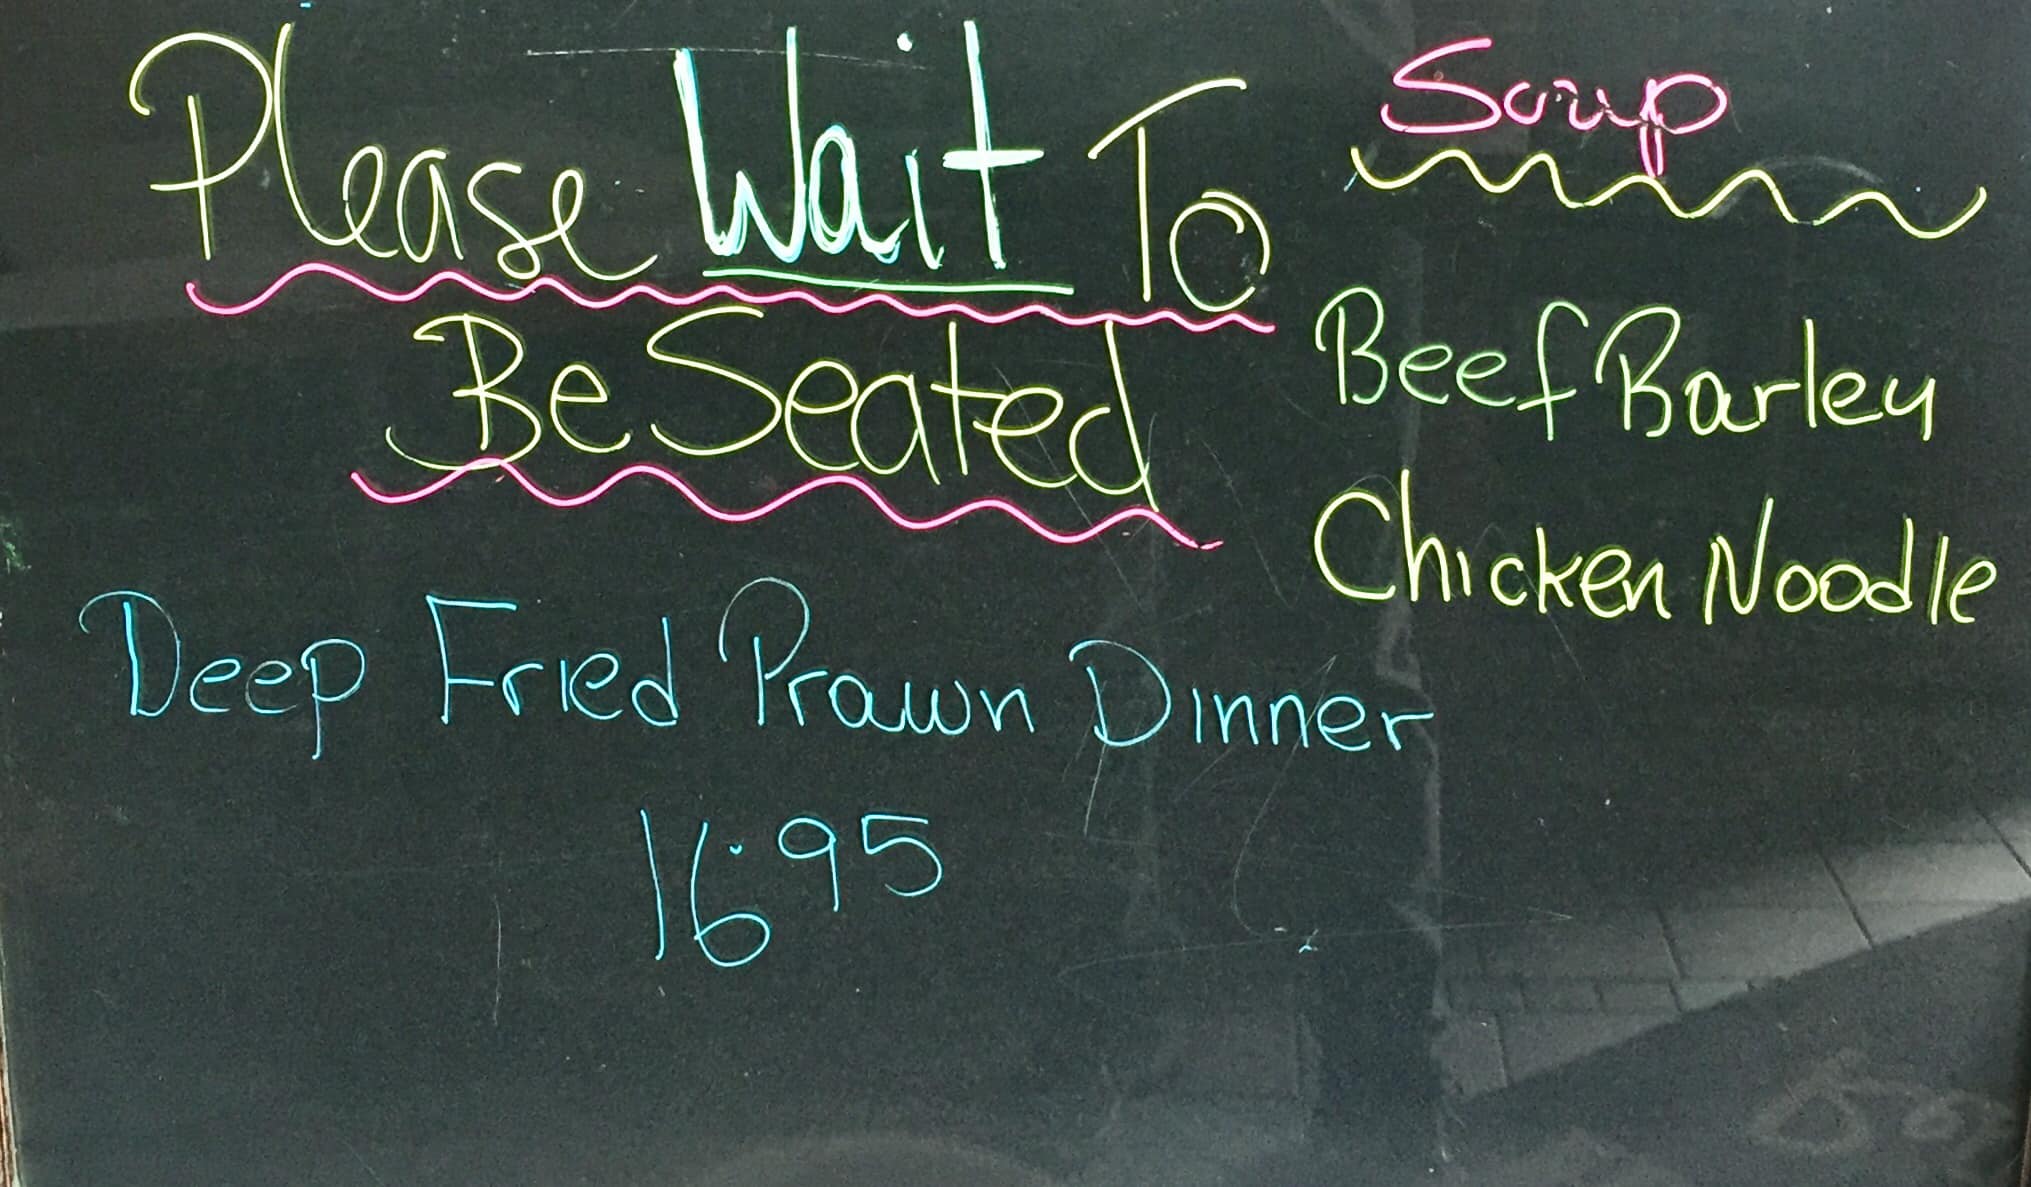 Please Wait To
Be Seated
Soup
Beef Barley
Chicken Noodle
Deep Fried Prawn Dinner
16.95